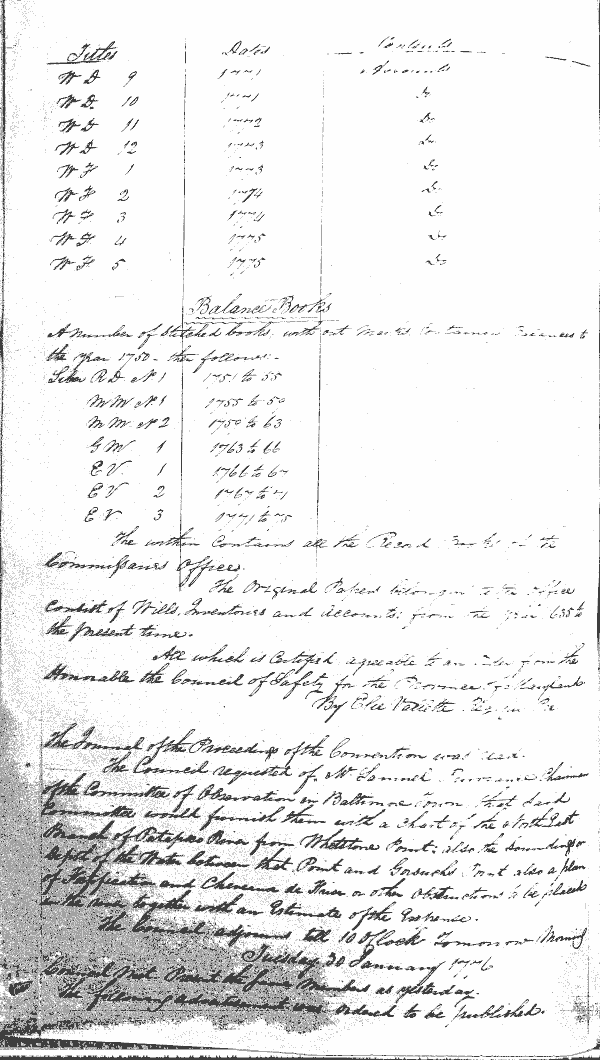 Titles Dates Contents
W D 9 1771 Accounts
W D. 10 1771 Do
W D 11 1772 Do
W D 12 1773 Do
W F 1 1773 Do
W F 2 1774 Do
W F 3 1774 Do
W F. 4 1775 Do
W F 5 1775 Do
Balance Books
A number of Stitched books, with out Marks Containing Balances to
the year 1750 - the follows:-
Liber R D. No 1 1751 to 55
M M No 1 1755 to 59
M M. No 2 1759 to 63
G M 1 1763 to 66
E V. 1 1766 to 67
E V 2 1767 to 71
E V 3 1771 to 75
The within Contains all the Record Books of the
Commissarys Offices.
The Original Papers belonging to the Office
Consist of Wills, Inventories and Accounts: from the year 1635 to
the present time.
All which is Certifyed agreeable to an Order from the
Honorable the Council of Safety for the Province of Maryland
By Elie Vallette
The Journal of the Proceedings of the Convention was read.
The Council requested of Mr Samuel Purviance Chairman
of the Committee of Observation in Baltimore Town, that said
Committee would furnish them with a Chart of the North East
Branch of Patapsco River from Whetstone Point; also the Soundings or
Depth of the Water between that Point and Gorsuchs Point also a plan
of and Cheveaux de Frise or other Obstructions to be placed
in the river together with an Estimate of the Expence.
The Council adjourns till 10 OClock Tomorrow Morning
Tuesday 30 January 1776
Council Met Present the same Members as yesterday.
The following advertisement was ordered to be published.